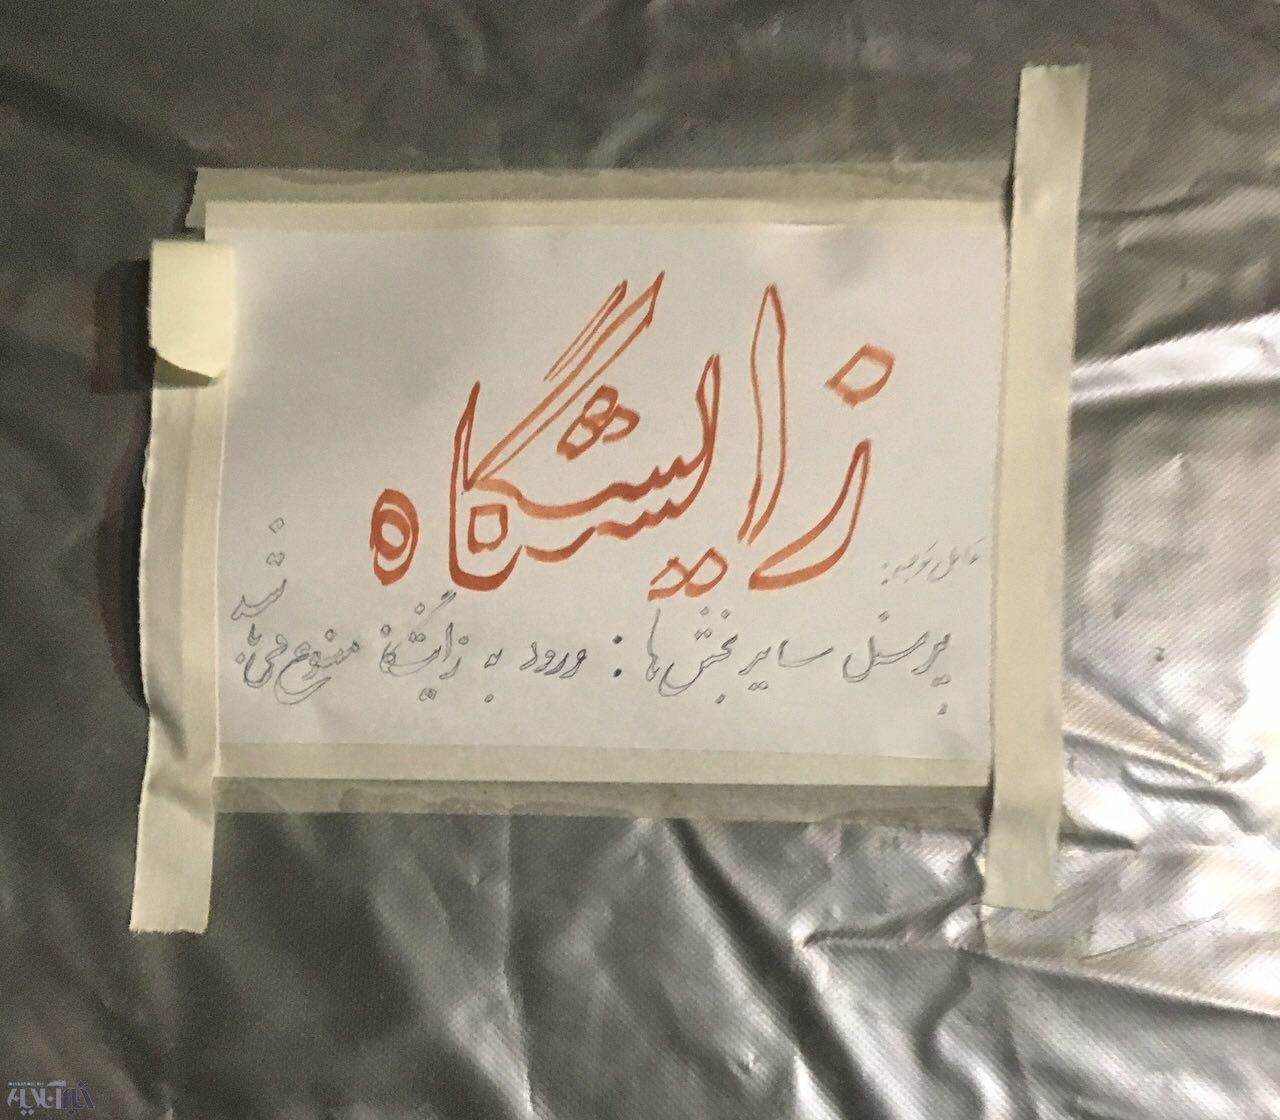 زایشگاه
قابل توجه:
پرسنل سایر بخش‌ها: ورود به زایشگاه ممنوع می‌باشد.
خبرآنلاین